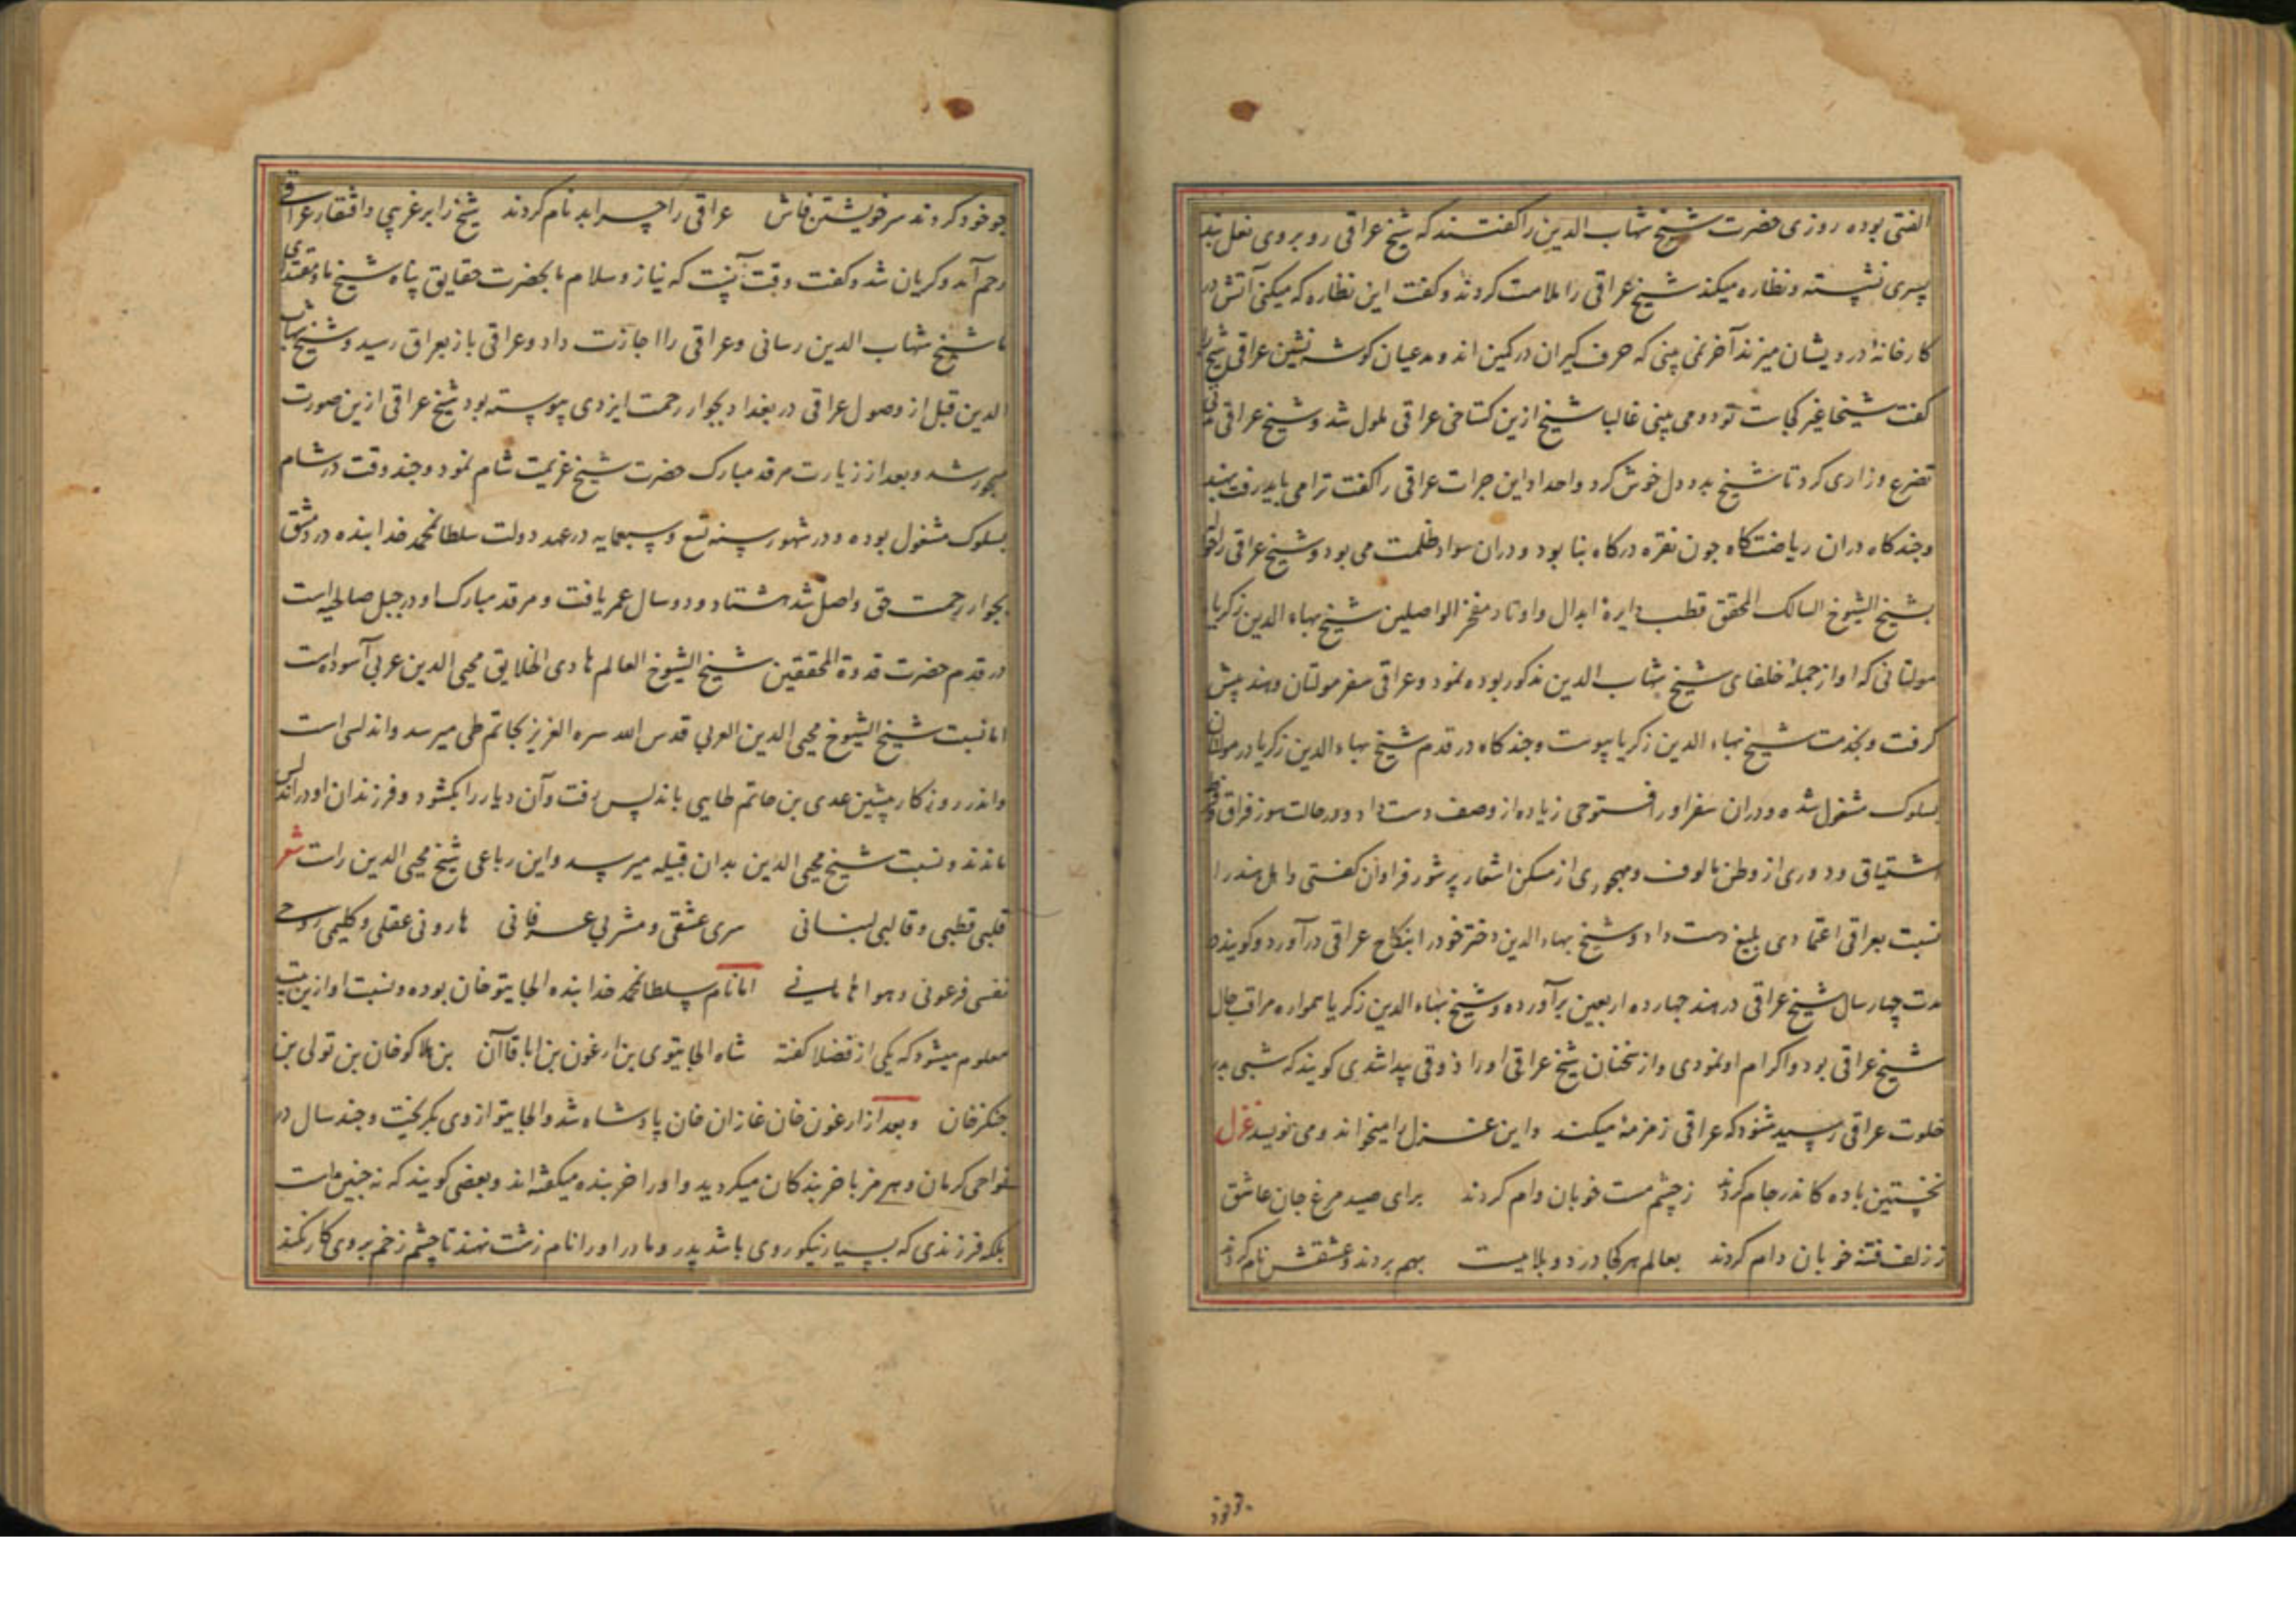 الفتی بوده روزی حضرت شیخ شهاب الدین را گفتند که شیخ عراقی رو بروی نعل بند
پسری نشسته و نظاره میکند شیخ عراقی را ملامت کردند و گفت این نظاره که میکنی آتش در
کارخانهٔ درویشان میزند آخر نمی بینی که حرف گیران در کمین اند و مدعیان گوشه نشین عراقی شیخ را
گفت شیخا غیر کجاست تو دو می بینی غالبا شیخ ازین گستاخی عراقی ملول شد و شیخ عراقی
تضرع و زاری کرد تا شیخ بدو دل خوش کرد واحدا و این جرات عراقی را گفت ترا می باید رفت بهند
و چند گاه دران ریاضتگاه چون نقره در گاه بنا بود و دران سواد ظلمت می بود و شیخ عراقی را
بشیخ الشیوخ السالک المحقق قطب دایرة ابدال و اوتاد مفخر الواصلین شیخ بهاء الدین زکریا
مولتانی که او از جملهٔ خلفای شیخ شهاب الدین مذکور بوده نمود و عراقی سفر مولتان و هند پیش
گرفت و بخدمت شیخ بهاء الدین زکریا پیوست و چند گاه در قدم شیخ بهاء الدین زکریا در مولتان
بسلوک مشغول شده و دران سفر او را فستوحی زیاده از وصف دست داد و در حالت سوز فراق و
اشتیاق و دوری از وطن مالوف و مهجوری از مسکن اشعار پر شور فراوان گفتی و اهل هند را
نسبت بعراقی اعتمادی بلیغ دست داد و شیخ بهاء الدین دختر خود را بنکاح عراقی در آورد و گویند
مدت چهار سال شیخ عراقی در هند چهارده اربعین برآورده و شیخ بهاء الدین زکریا همواره مراقب حال
شیخ عراقی بود و اکرام او نمودی و از سخنان شیخ عراقی او را ذوقی پیدا شدی گویند که شبی بدر
خلوت عراقی رسید شنود که عراقی زمزمهٔ میکند و این غزل را میخواند و می نویسد غزل
نخستین باده کاندر جام کردند ز چشم مست خوبان وام کردند برای صید مرغ جان عاشق
ز زلف فتنه خوبان دام کردند بعالم هر کجا درد و بلاییست بهم بردند و عشقش نام کردند
چو خود کردند سر خویشتن فاش عراقی را چرا بد نام کردند شیخ را بر غریبی و افتقار عراقی
رحم آمد و گریان شد و گفت وقت آنست که نیاز و سلام ما بحضرت حقایق پناه شیخ ما و مقتدای
ما شیخ شهاب الدین رسانی و عراقی را اجازت داد و عراقی باز بعراق رسید و شیخ شهاب
الدین قبل از وصول عراقی در بغداد بجوار رحمت ایزدی پیوسته بود شیخ عراقی ازین صورت
مهجور شد و بعد از زیارت مرقد مبارک حضرت شیخ عزیمت شام نمود و چند وقت در شام
بسلوک مشغول بوده و در شهور سنه تسع و سبعمایه در عهد دولت سلطان محمد خدابنده در دمشق
بجوار رحمت حق واصل شد هشتاد و دو سال عمر یافت و مرقد مبارک او در جبل صالحیه است
در قدم حضرت قدوة المحققین شیخ الشیوخ العالم هادی الخلایق محیی الدین عربی آسوده است
اما نسبت شیخ الشیوخ محیی الدین العربی قدس الله سره العزیز بحاتم طی میرسد و اندلسی است
و اندر روزگار پیشین عدی بن حاتم طایی باندلس رفت و آن دیار را بگشود و فرزندان او در اندلس
ماندند و نسبت شیخ محیی الدین بدان قبیله میرسد و این رباعی شیخ محیی الدین راست شعر
قلبی قطبی و قالبی لبنانی سری عشقی و مشربی عرفانی هارونی عقلی و کلیمی روحی
نفسی فرعونی و هوا هامانی اما نام سلطان محمد خدابنده الجایتو خان بوده و نسبت او ازین بیت
معلوم میشود که یکی از فضلا گفته شاه الجایتوی بن ارغون بن اباقاآن بن هلاکوخان بن تولی بن
چنگزخان و بعد از ارغون خان غازان خان پادشاه شد و الجایتو از وی بگریخت و چند سال در
نواحی کرمان و هرمز با خربندگان میگردید و او را خربنده میگفته اند و بعضی گویند که نه چنین است
بلکه فرزندی که بسیار نیکوروی باشد پدر و مادر او را نام زشت نهند تا چشم زخم بروی کار نکند